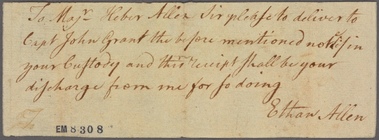 To Majr. Heber Allen Sir please to deliver to
Capt John Grant the before mentioned notes in
your Custody and this receipt shall be your
discharge from me for so doing
Ethan Allen
EM 8308